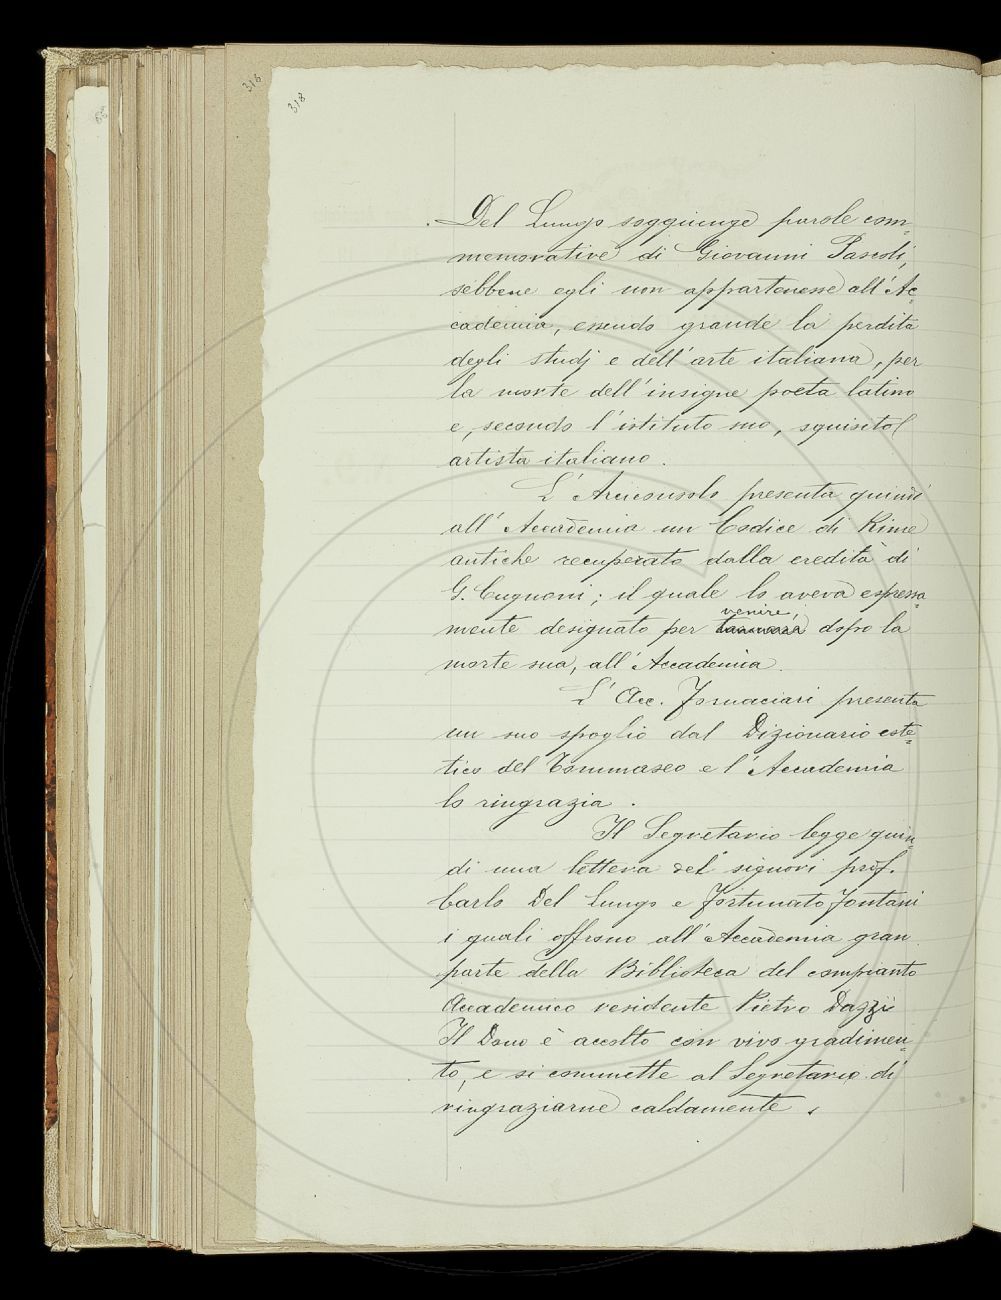 318
318
Del Lungo soggiunge parole com-
memorative di Giovanni Pascoli,
sebbene egli non appartenesse all'Ac-
cademia, essendo grande la perdita
degli studj e dell'arte italiana, per
la morte dell'insigne poeta latino
e, secondo l'istituto suo, squisito
artista italiano.
L'Arciconsolo presenta quindi
all'Accademia un Codice di Rime
antiche recuperato dalla eredità di
G. Cugnoni; il quale lo aveva espressa-
venire,
mente designato per dopo la
morte sua, all'Accademia.
L'Acc. Fornaciari presenta
un suo spoglio dal Dizionario este-
tico del Tommaseo e l'Accademia
lo ringrazia.
Il Segretario legge quin-
di una lettera dei signori prof.
Carlo Del Lungo e Fortunato Fontani
i quali offrono all'Accademia gran
parte della Biblioteca del compianto
Accademico residente Pietro Dazzi
Il Dono è accolto con vivo gradimen-
to, e si commette al Segretario di
ringraziarne caldamente.